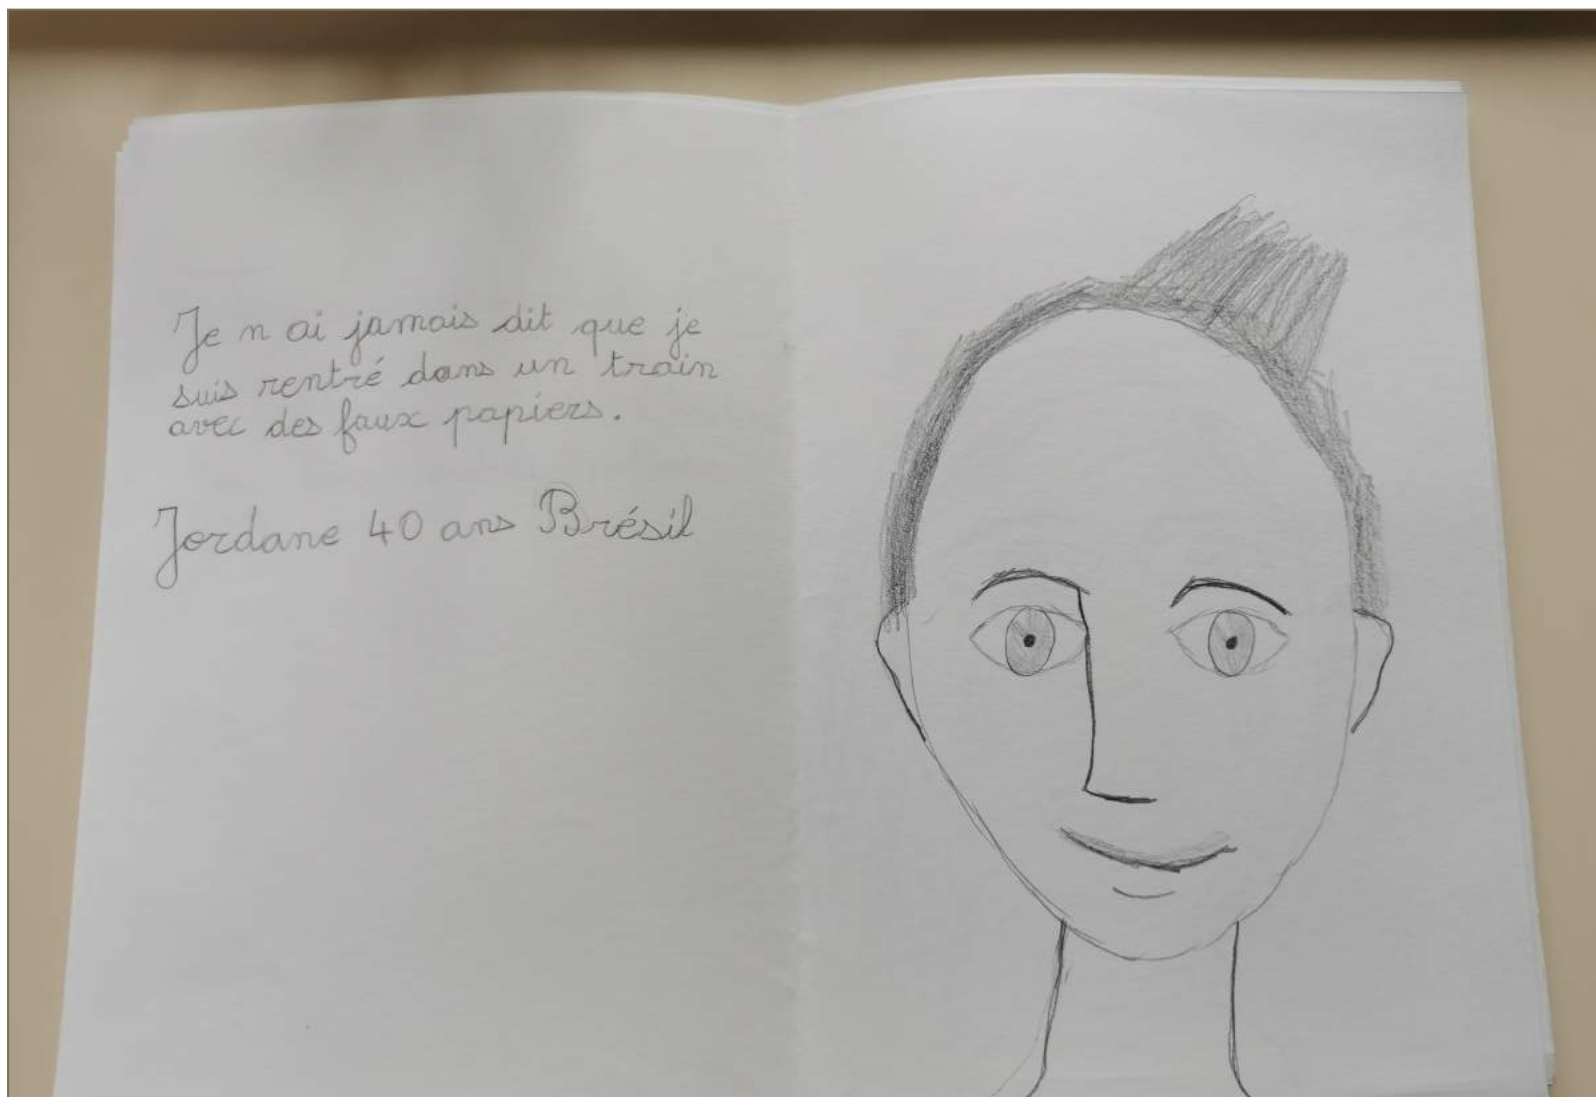 Je n ai jamais dit que je
suis rentré dans un train
avec des faux papiers.
Jordane 40 ans Brésil